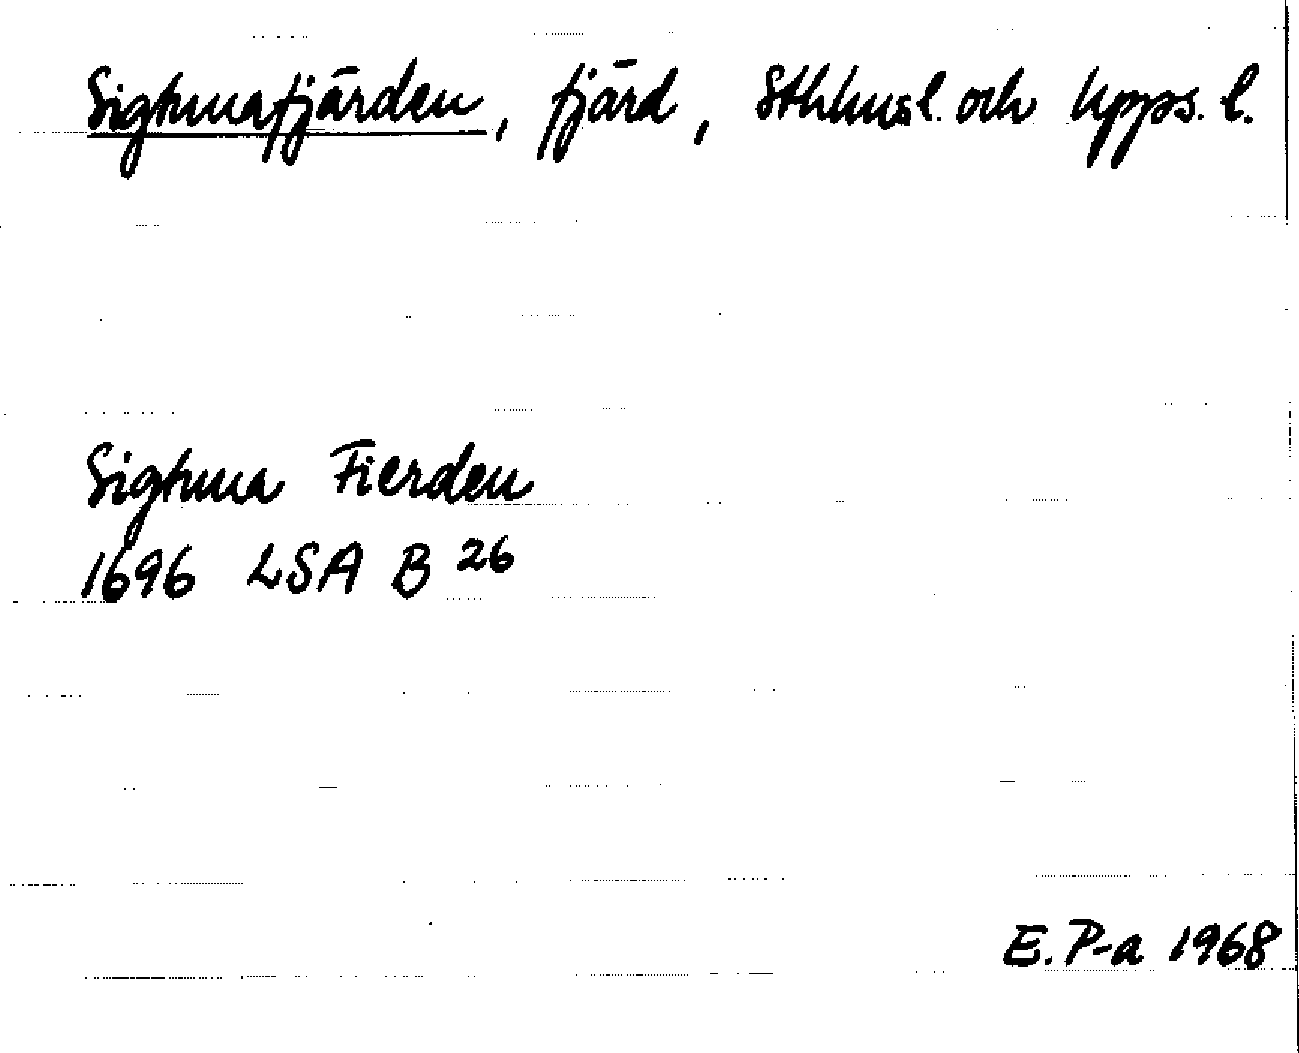 Sigtunafjärden, fjärd, Sthlmsl. och Upps. l.
Sigtuna Fierden
1696 LSA B 26
E. P-a 1968